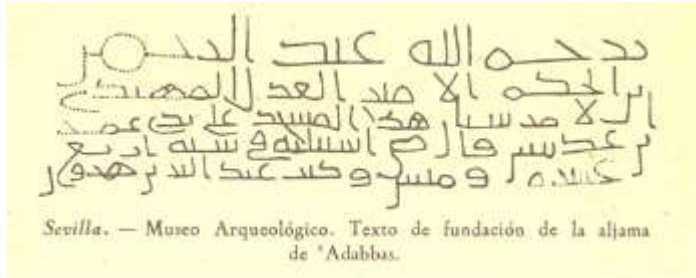 يرحم الله عبد الرحمن
بن الحكم الامير العدل المهتدي
الامر ببنيان هذا المسجد على يد عمر
بن عدبس قاضي اشبيلية في سنة اربع
عشرة ومئتين وكتب عبد البر بن هرون
Sevilla. — Museo Arqueológico. Texto de fundación de la aljama
de ʿAdabbas.